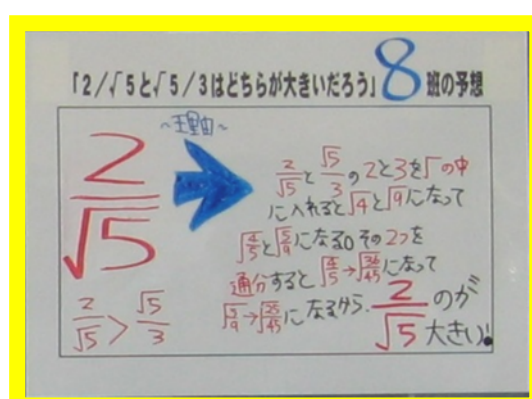 「2/√5と√5/3はどちらが大きいだろう」8班の予想
~理由~
2/√5
2/√5 > √5/3
2/√5と√5/3の2と3を√の中
に入れると√4と√9になって
√4/5と√5/9になる。その2つを
通分すると√4/5→√36/45になって
√5/9→√25/45になるから、2/√5のが
大きい!